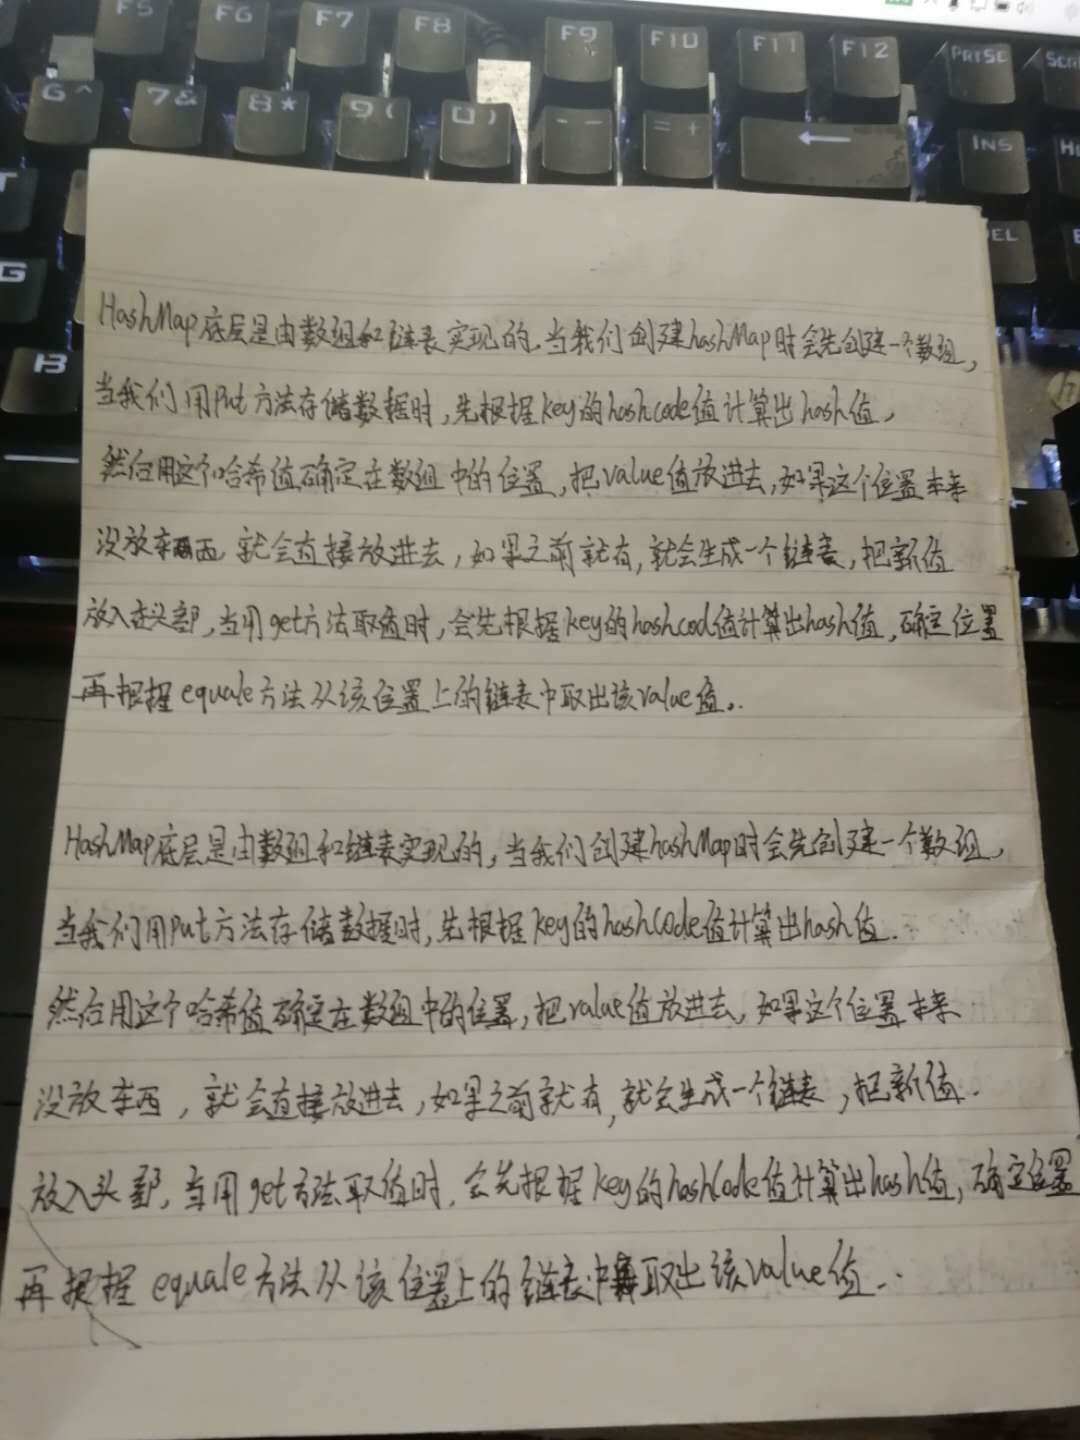 F5 F6 F7 F8 F9 F10 F11 F12 PRTSC
6^ 7& 8* 9( 0) - - = + ← INS
G
B
HashMap底层是由数组和链表实现的.当我们创建hashMap时会先创建一个数组,
当我们用Put方法存储数据时,先根据key的hashcode值计算出hash值,
然后用这个哈希值确定在数组中的位置,把value值放进去,如果这个位置本来
没放东西 就会直接放进去,如果之前就有,就会生成一个链表,把新值
放入头部,当用get方法取值时,会先根据key的hashcod值计算出hash值,确定位置
再根据equale方法从该位置上的链表中取出该value值..
HashMap底层是由数组和链表实现的,当我们创建hashMap时会先创建一个数组,
当我们用Put方法存储数据时,先根据key的hashCode值计算出hash值.
然后用这个哈希值确定在数组中的位置,把value值放进去,如果这个位置本来
没放东西,就会直接放进去,如果之前就有,就会生成一个链表,把新值.
放入头部,当用get方法取值时,会先根据key的hashCode值计算出hash值,确定位置
再根据equale方法从该位置上的链表中取出该value值..